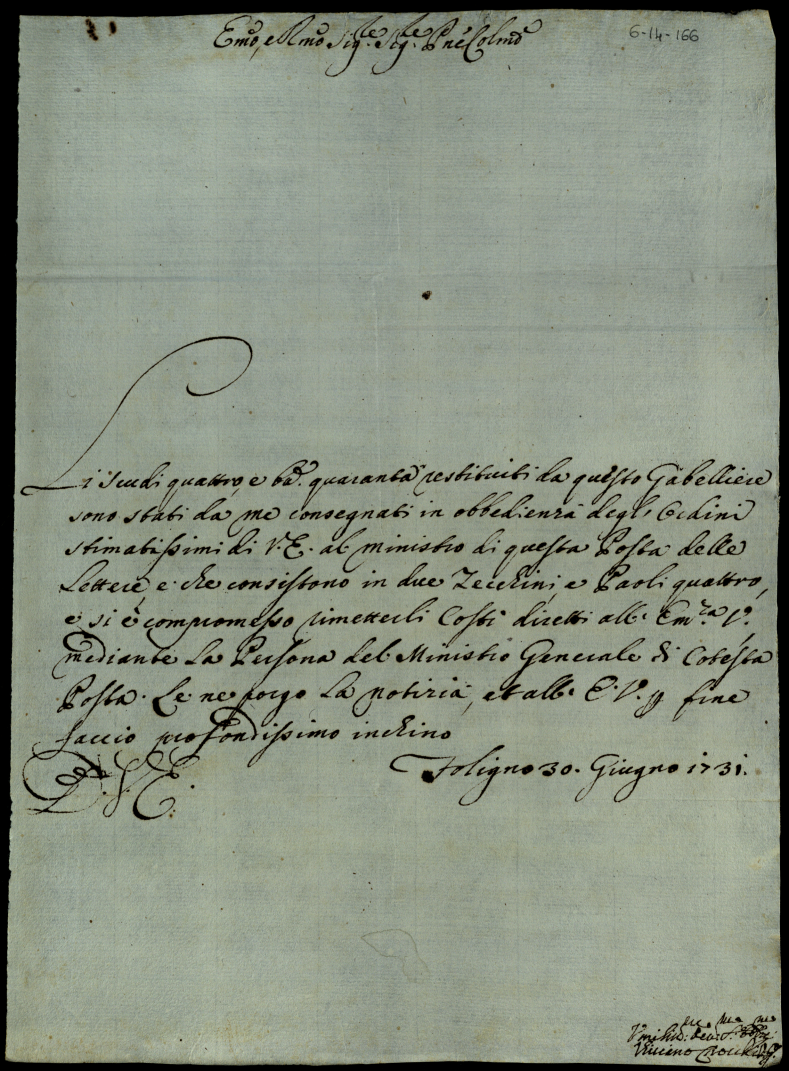 Emõ, e Rmõ Sig.re Sig.re Pñe Colmõ
6-14-166
Li scudi quattro, e bã. quaranta restituiti da questo Gabelliere
sono stati da me consegnati in obbedienza degl'ordini
stimatissimi di V. E. al ministro di questa Posta delle
Lettere, e che consistono in due Zecchini, e Paoli quattro,
e si è compromesso rimetterli Costì diretti all' Em.za V.
mediante La Persona del Ministro Generale di Cotesta
Posta. Le ne porgo La notizia, et all' E. V. p fine
faccio profondissimo inchino
Foligno 30. Giugno 1731.
D. V. E.
Vmiliss.mo Dev.mo